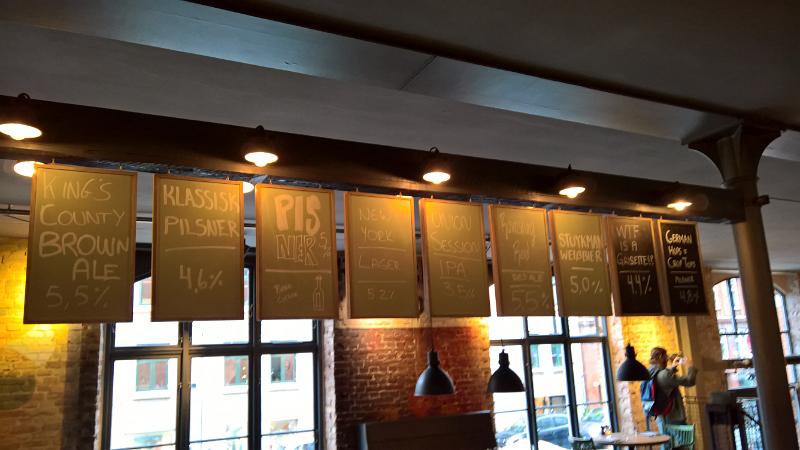 KING'S
COUNTY
BROWN
ALE
5,5%
KLASSISK
PILSNER
4,6%
PIS
NER
NEW
YORK
LAGER
5.2%
UNION
SESSION
IPA
3.5%
RED ALE
5,5%
STUYKMAN
WEISSBIER
5,0%
WTF
IS A
GRISETTE!?
4.4%
GERMAN
HOPS &
CROP TOPS
PILSNER
4,8%